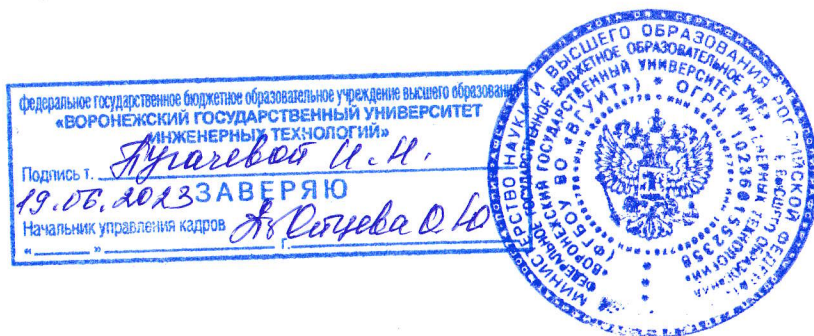 федеральное государственное бюджетное образовательное учреждение высшего образования
«ВОРОНЕЖСКИЙ ГОСУДАРСТВЕННЫЙ УНИВЕРСИТЕТ
ИНЖЕНЕРНЫХ ТЕХНОЛОГИЙ»
Подпись т. Пугачевой И.М.
19.06.2023 ЗАВЕРЯЮ
Начальник управления кадров О.Ю
« » г.
МИНИСТЕРСТВО НАУКИ И ВЫСШЕГО ОБРАЗОВАНИЯ РОССИЙСКОЙ ФЕДЕРАЦ
ФЕДЕРАЛЬНОЕ ГОСУДАРСТВЕННОЕ БЮДЖЕТНОЕ ОБРАЗОВАТЕЛЬНОЕ УЧРЕЖ ВЫСШЕГО ОБРАЗОВАНИЯ
«ВОРОНЕЖСКИЙ ГОСУДАРСТВЕННЫЙ УНИВЕРСИТЕТ ИНЖЕНЕРНЫХ ТЕХНОЛОГИЙ»
(ФГБОУ ВО «ВГУИТ») * ОГРН 1023601552358